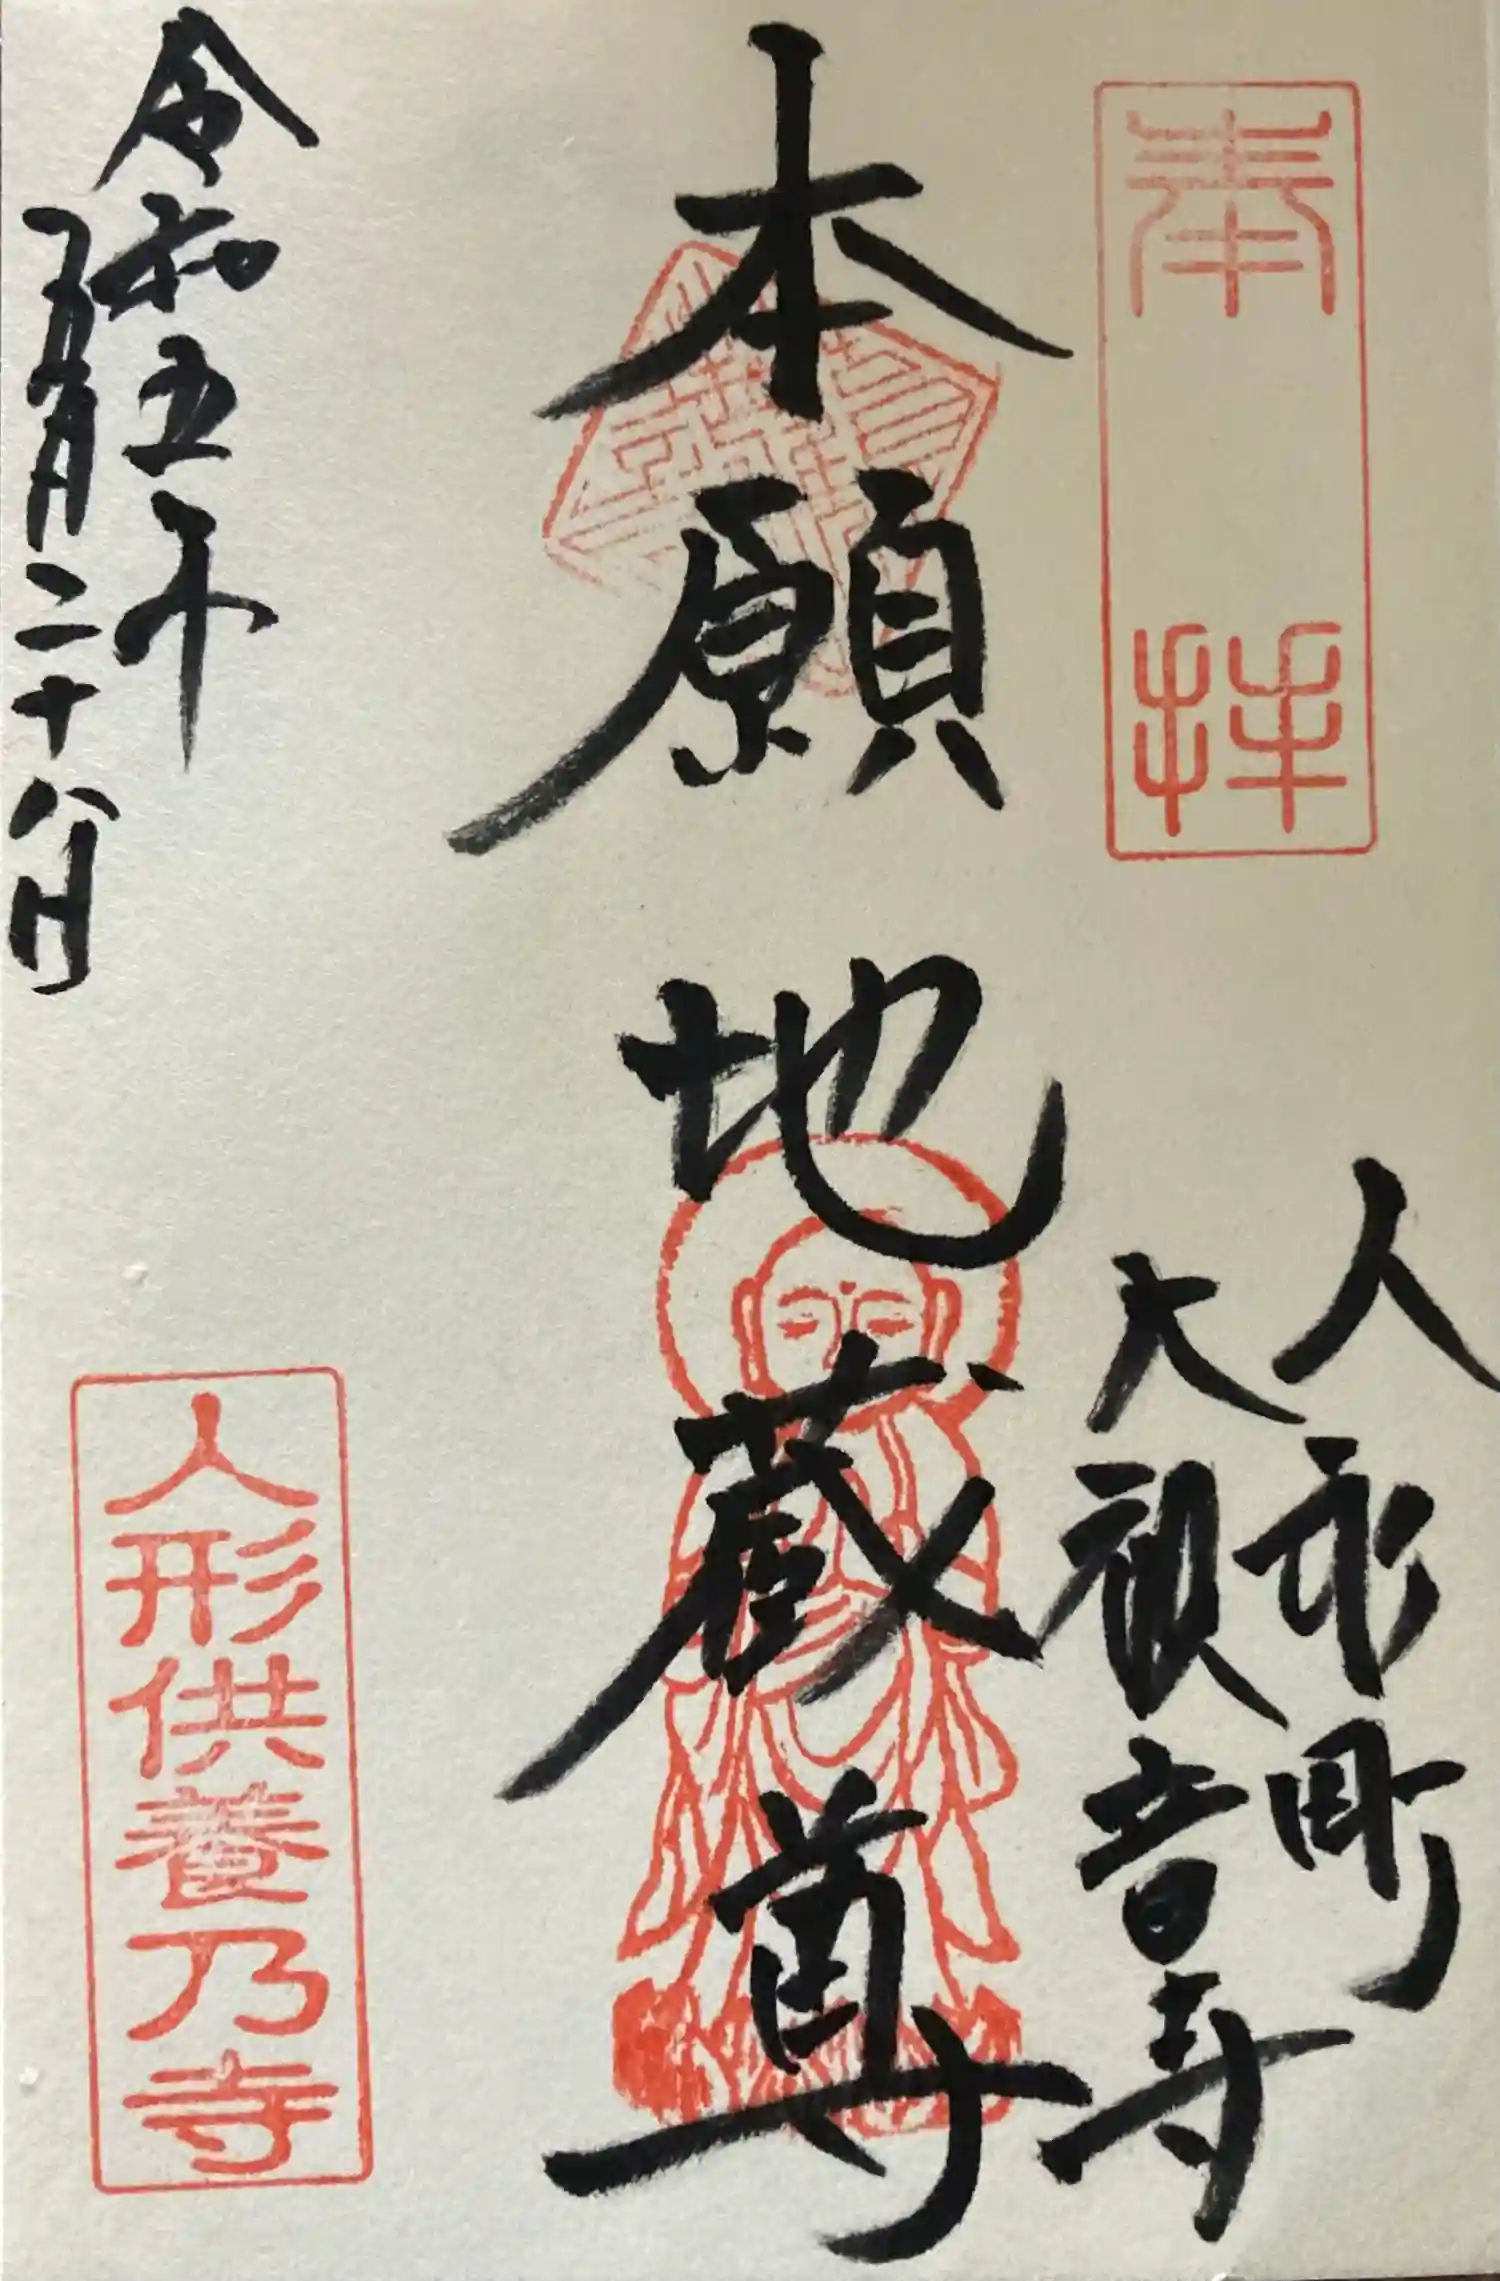 奉拝
人形町
大観音寺
本願地蔵尊
令和五年
月二十八日
人形供養乃寺